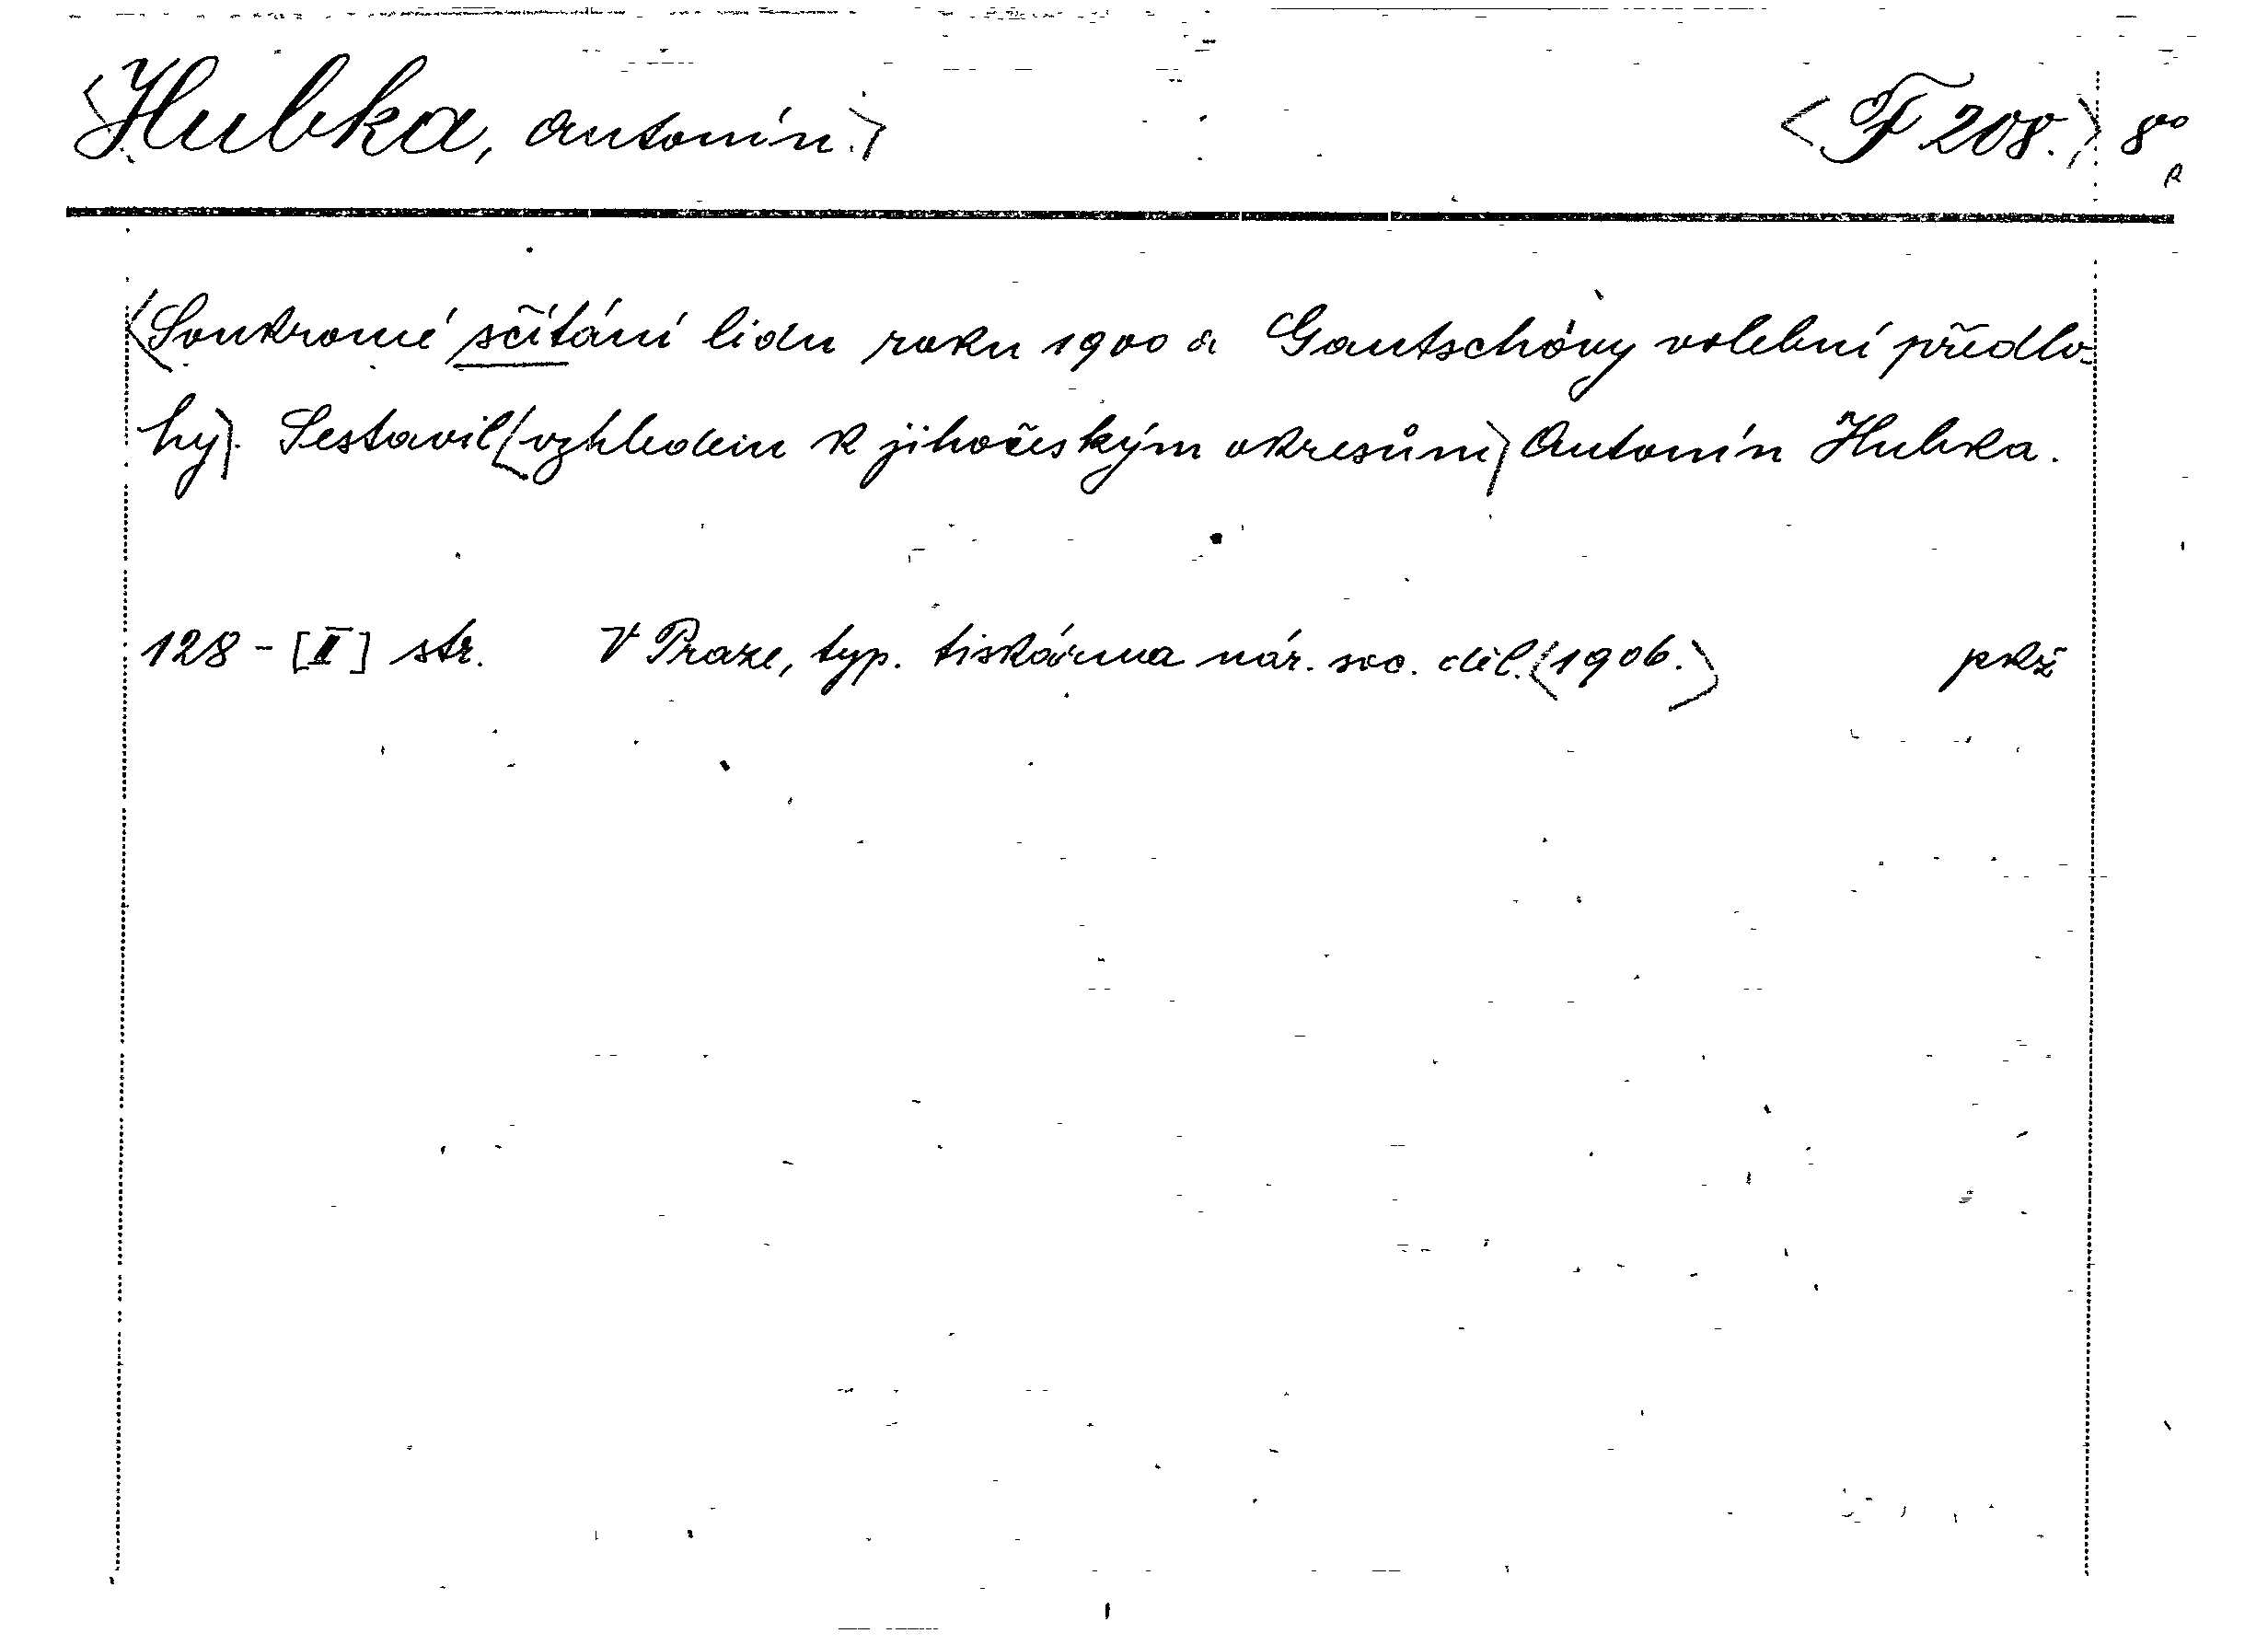 <Hubka, Antonín.> <F 208.> 8°°
R
<Soukromé sčítání lidu roku 1900 a Gautschovy volební předlo-
hy>. Sestavil <vzhledem k jihočeským okresům> Antonín Hubka.
128 - [II] str. V Praze, typ. tiskárna nár. soc. děl. <1906.> pkž